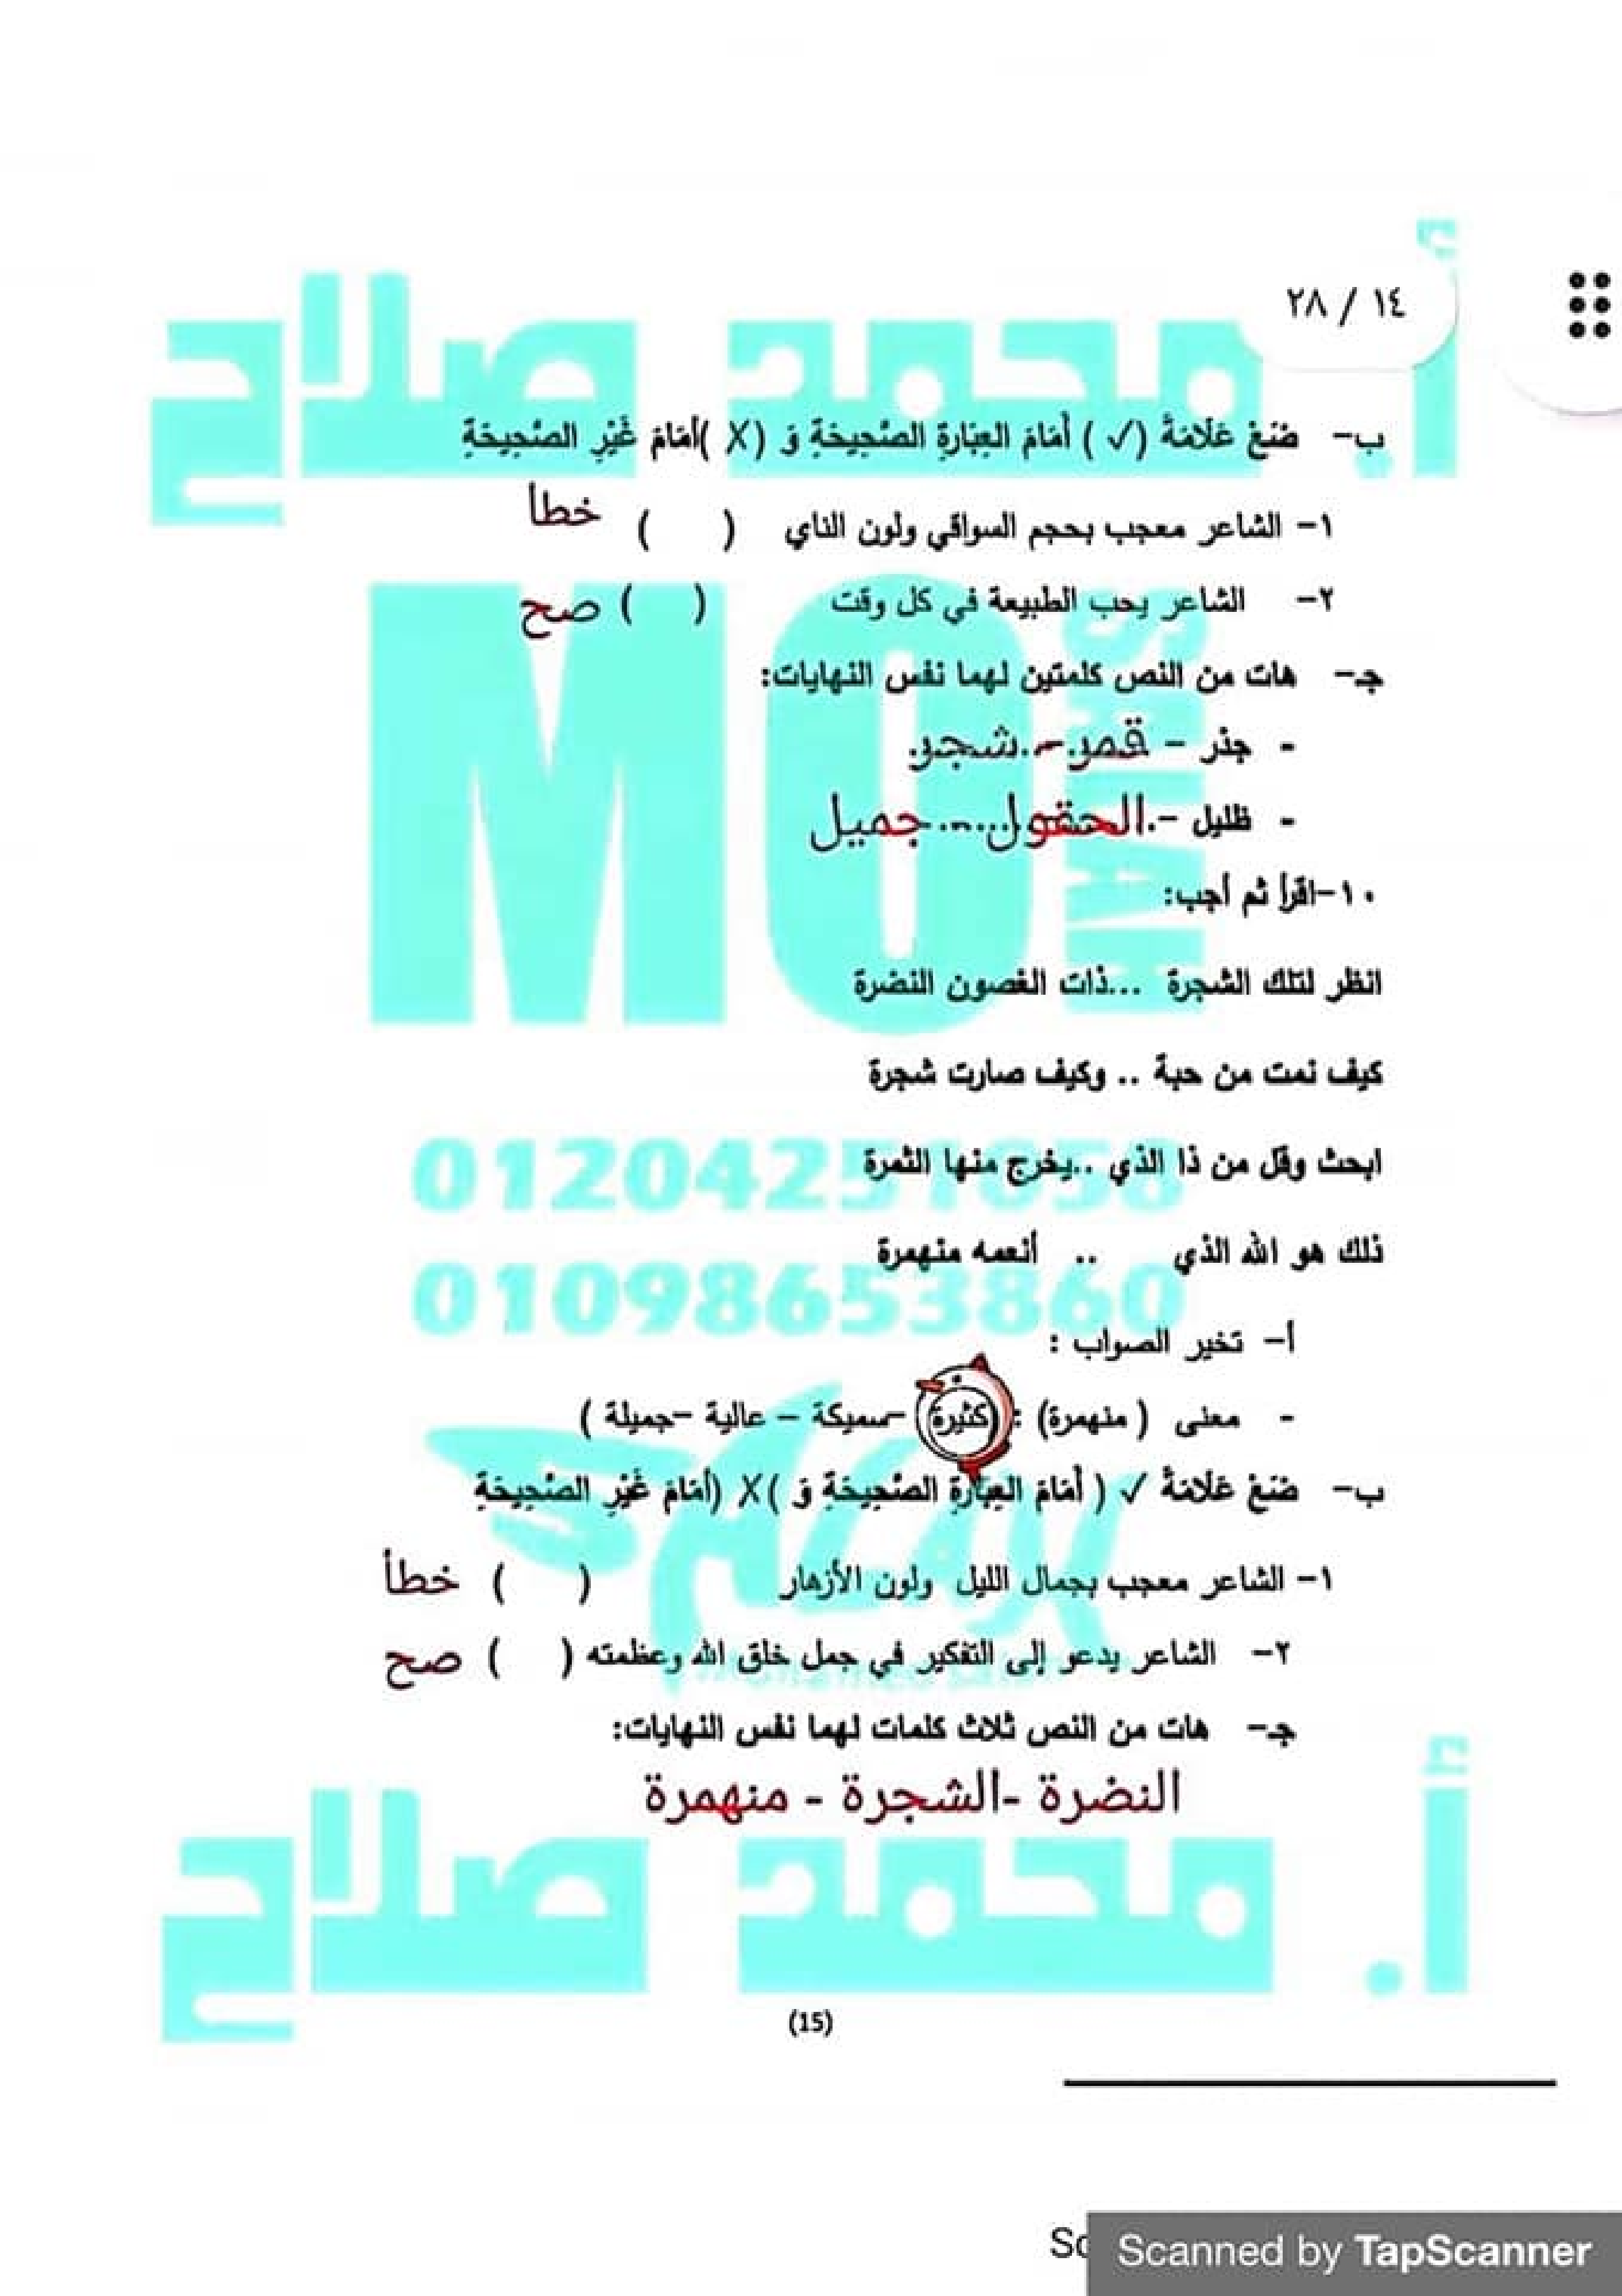 أ. محمد صلاح
١٤ / ٢٨
ب- ضَعْ عَلَامَةَ (✓) أَمَامَ العِبَارَةِ الصَّحِيحَةِ وَ (X) أَمَامَ غَيْرِ الصَّحِيحَةِ
١- الشاعر معجب بحجم السواقي ولون الناي ( ) خطأ
٢- الشاعر يحب الطبيعة في كل وقت ( ) صح
جـ- هات من النص كلمتين لهما نفس النهايات:
- جذر - قمر - شجر
- ظليل - الحقول .... جميل
١٠-اقرأ ثم أجب:
انظر لتلك الشجرة ...ذات الغصون النضرة
كيف نمت من حبة .. وكيف صارت شجرة
ابحث وقل من ذا الذي ..يخرج منها الثمرة
ذلك هو الله الذي .. أنعمه منهمرة
أ- تخير الصواب :
- معنى ( منهمرة) : (كثيرة -سميكة - عالية -جميلة )
ب- ضَعْ عَلَامَةَ ✓ ( أَمَامَ العِبَارَةِ الصَّحِيحَةِ وَ )X (أَمَامَ غَيْرِ الصَّحِيحَةِ
١- الشاعر معجب بجمال الليل ولون الأزهار ( ) خطأ
٢- الشاعر يدعو إلى التفكير في جمل خلق الله وعظمته ( ) صح
جـ- هات من النص ثلاث كلمات لهما نفس النهايات:
النضرة -الشجرة - منهمرة
أ. محمد صلاح
MO
01098653860
SALAH
(15)
Scanned by TapScanner